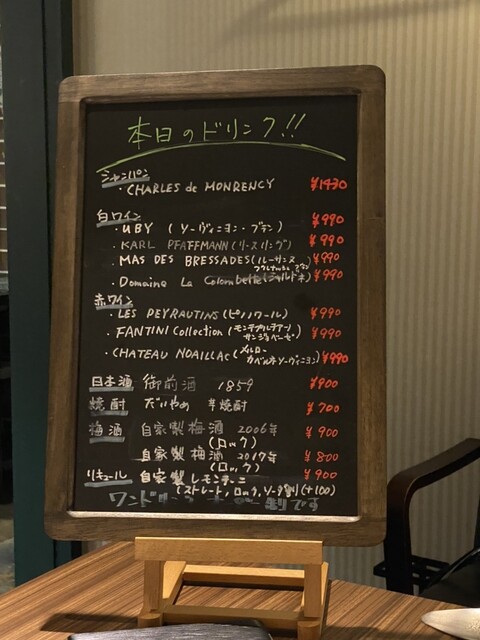 本日のドリンク!!
シャンパン
・CHARLES de MONRENCY ¥1430
白ワイン
・UBY (ソーヴィニヨン・ブラン) ¥990
・KARL PFAFFMANN (リースリング) ¥990
・MAS DES BRESSADES (ルーサンヌ ¥990
・Domaine La Colombette (シャルドネ) ¥990
赤ワイン
・LES PEYRAUTINS (ピノノワール) ¥990
・FANTINI Collection (モンテプルチアーノ サンジョベーゼ) ¥990
・CHATEAU NOAILLAC (メルロー カベルネソーヴィニヨン) ¥990
日本酒 御前酒 1859 ¥900
焼酎 だいやめ 芋焼酎 ¥700
梅酒 自家製梅酒 2006年 ¥900
(ロック)
自家製梅酒 2017年 ¥800
(ロック)
リキュール 自家製レモンチーニ ¥900
(ストレート, ロック, ソーダ割(+100)
ワンドリンク 制です